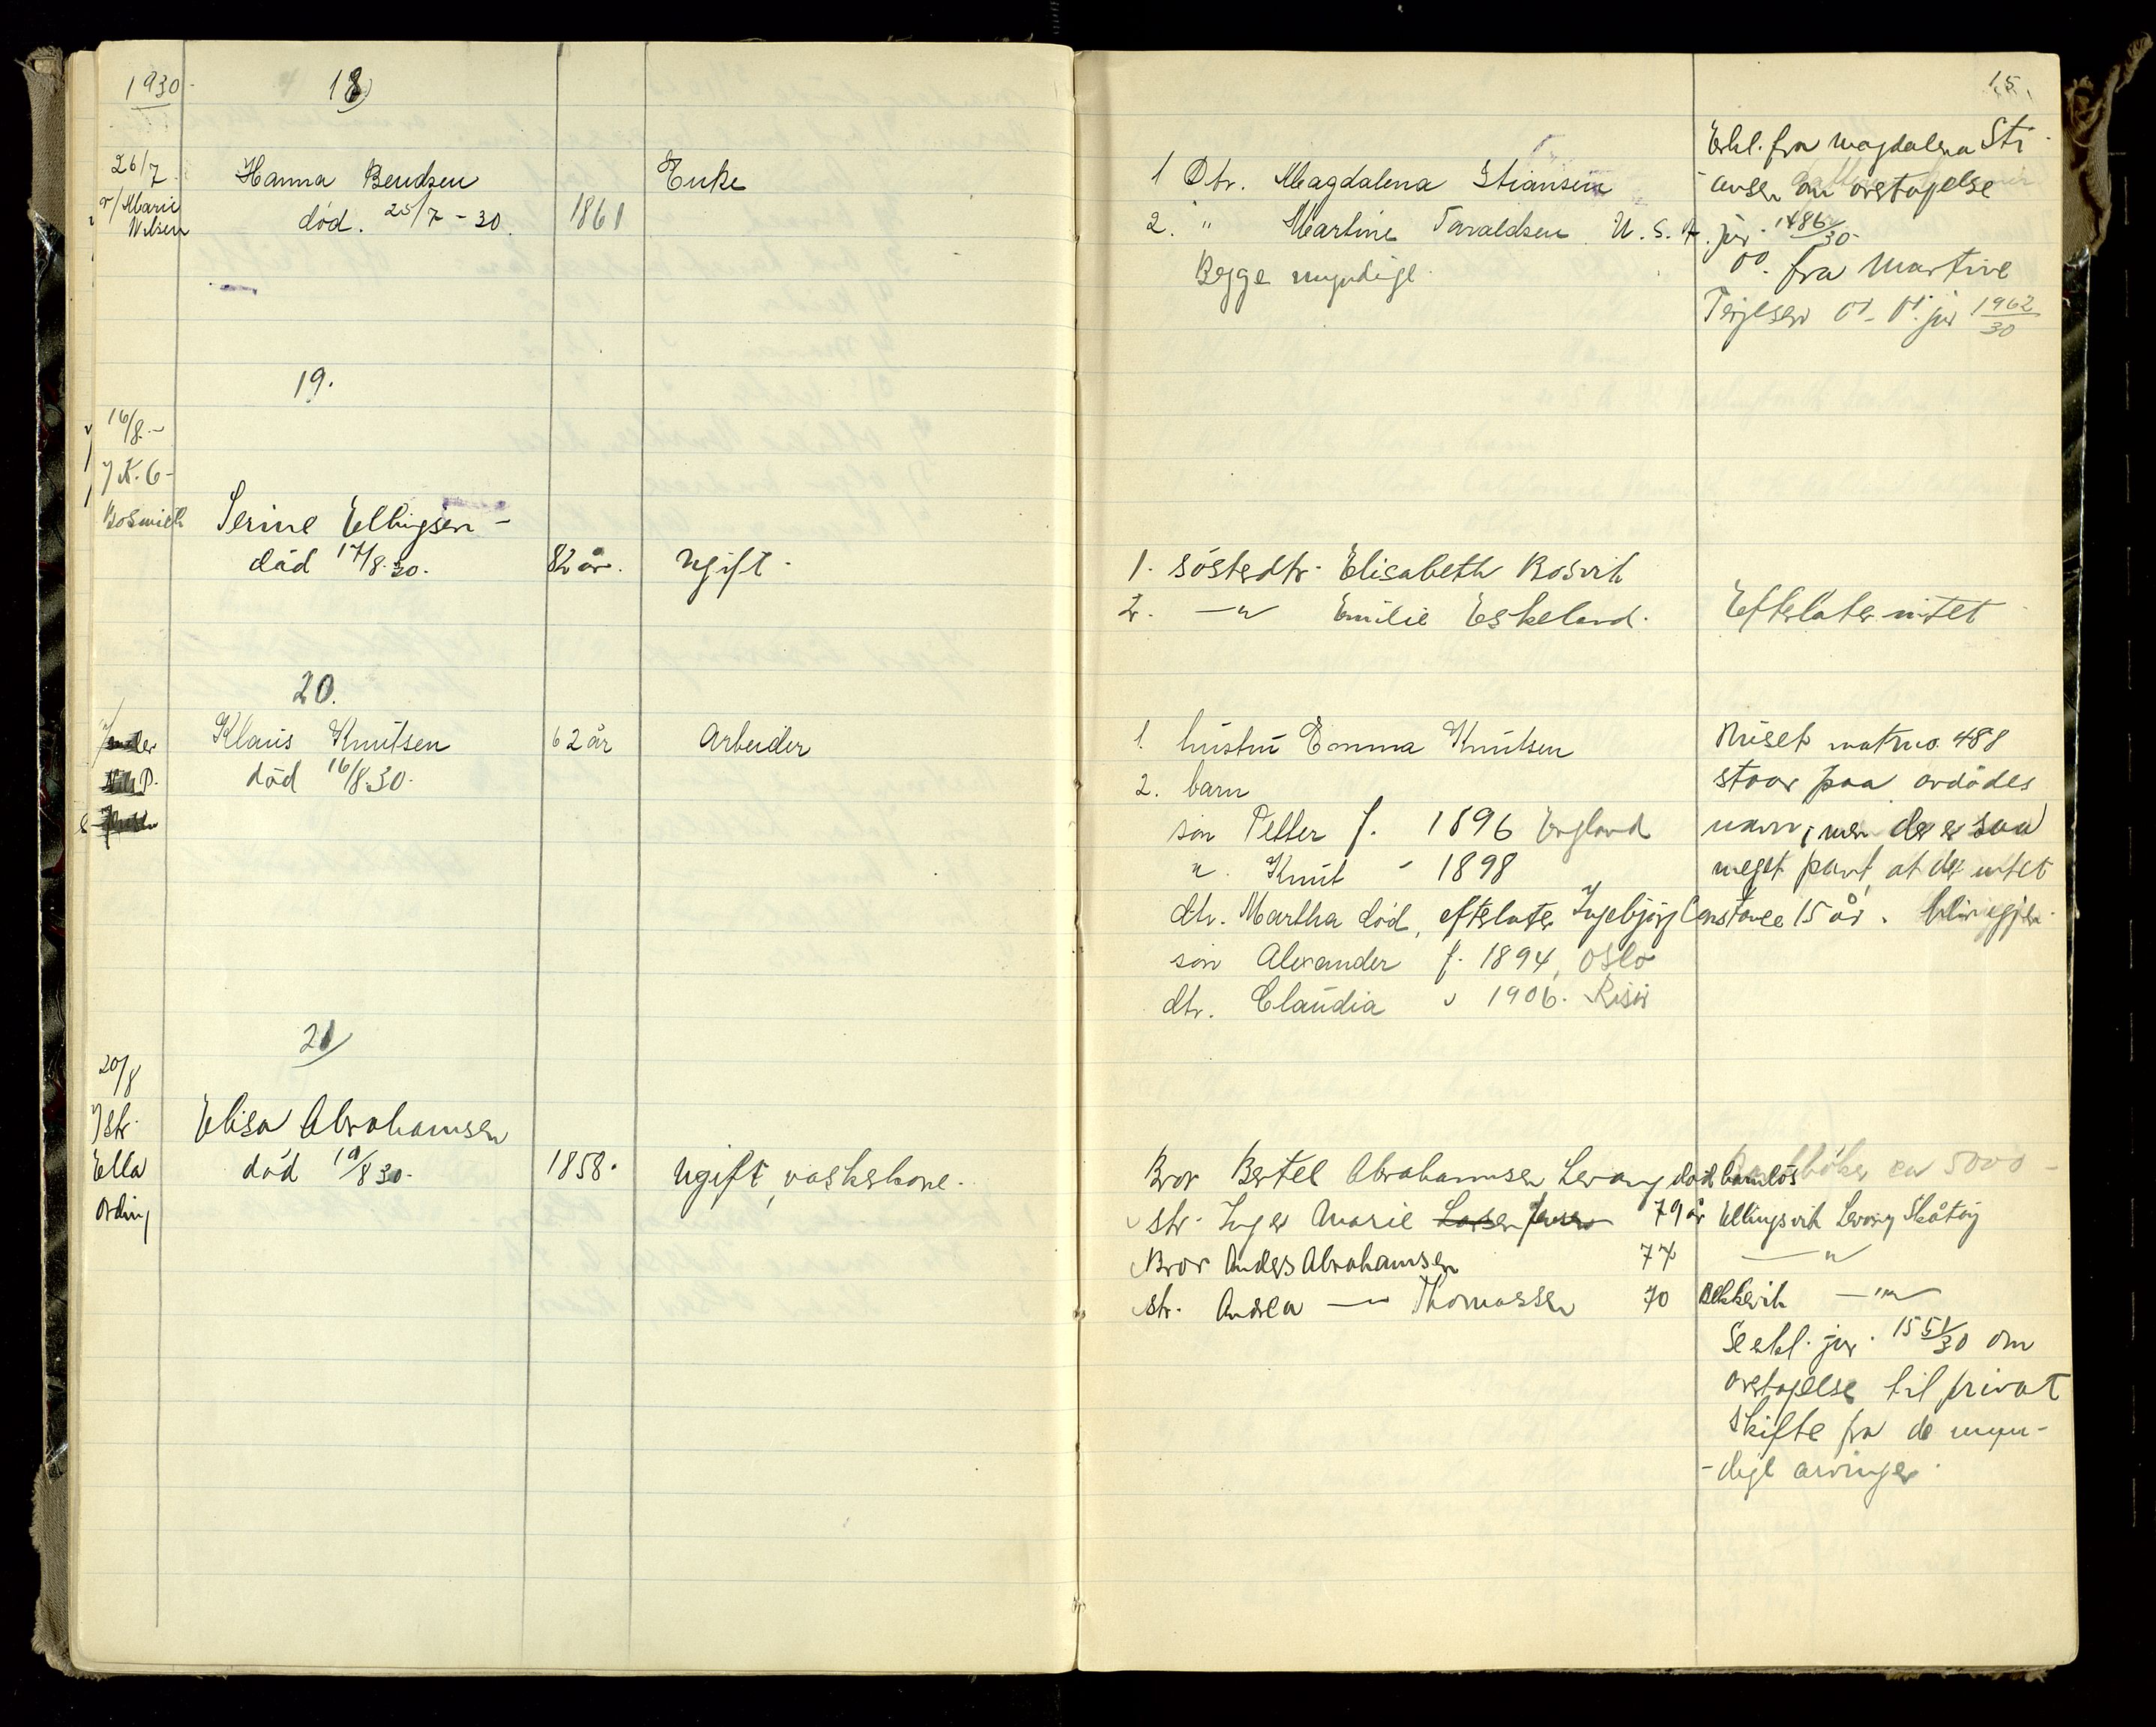 1930
18)
26/7
v/Marie
Nilsen
Hanna Bendsen
død. 25/7 - 30.
1861
Enke
19.
16/8 -
v/ K. G -
Bosvik
Serine Ellingsen -
død 14/8.30.
82 år.
Ugift -
20.
Klaus Knutsen
død 16/8 30.
62 år
Arbeider
21)
20/8
v/str.
Ella
Ording
Elisa Abrahamsen
død 19/8 30.
1858.
Ugift, vaskekone.
15.
1 Dtr. Magdalena Stiansen
2. " Martine Taraldsen U.S.A.
Begge myndige.
Erkl. fra Magdalena Sti-
ansen om overtagelse
jur. 1486/30
do. fra Martine
Terjesen o. o. jur 1962/30
1. søsterdtr. Elisabeth Bosvik
2. — " Emilie Eskeland.
Efterlater intet
1. hustru Emma Knutsen
2. barn
søn Petter f. 1896 England
" Knut " 1898
dtr. Martha død, efterlater Ingebjørg Constance 15 år.
søn Alexander f. 1894, Oslo
dtr. Claudia " 1906. Risør
Huset matrno. 488
staar paa avdødes
navn, men der er saa
meget pant, at der intet
blir igjen.
Bror Bertel Abrahamsen Levang død barnløs
Bankbøker ca 5000 -
str. Inger Marie Larsen Jensen 79 år Ellingsvik Levang Skåtøy
Bror Anders Abrahamsen 74 — " —
str. Andrea — Thomassen 70 Bekkevik — " —
Se erkl. jur. 1551/30 om
overtagelse til privat
skifte fra de myn-
dige arvinger.